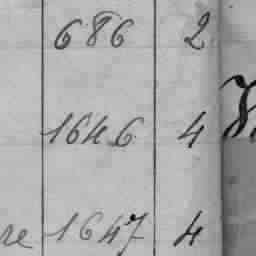 686 2
1646 4
re 1647 4